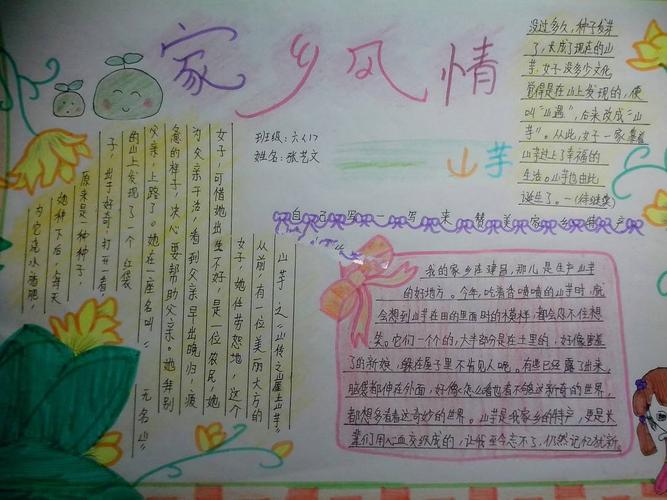 家乡风情
班级:六〈1〉
姓名:张艺文
山芋
自己写一写来赞美家乡特产
山芋之《山
从前,有一位美丽大方的
女子,她任劳怨地,这个
女子,可惜她出生不好,是一位农民,她
为父亲干活,看到父亲早出晚归,疲
惫的样子,决心要帮助父亲。她告别
父亲,上路了。她在一座名叫《无名山》
的山上发现了一个红袋
子,出于好奇,打开一看,
原来是一种种子,
她种下后,每天
为它浇水施肥,
没过多久,种子发芽
了,长成了现在的山
芋,女子没多少文化
觉得是在山上发现的,便
叫“山遇”,后来改成“山
芋”。从此,女子一家靠着
山芋过上了幸福的
生活。山芋也由此
诞生了。—(待继续)
我的家乡在建昌,那儿是生产山芋
的好地方。今年,吃着香喷喷的山芋时,就
会想到山芋在田的里面时的模样,都会忍不住想
笑。它们一个个的,大半部分是在土里的,好像害羞
了的新娘,躲在屋子里不肯见人呢。有些已经露了出来,
脑袋都伸在外面,好像怎么看也看不够这新奇的世界,
都想多看看这奇妙的世界。山芋是我家乡的特产,更是长
辈们用心血交织成的,让我至今忘不了,仍然记忆犹新